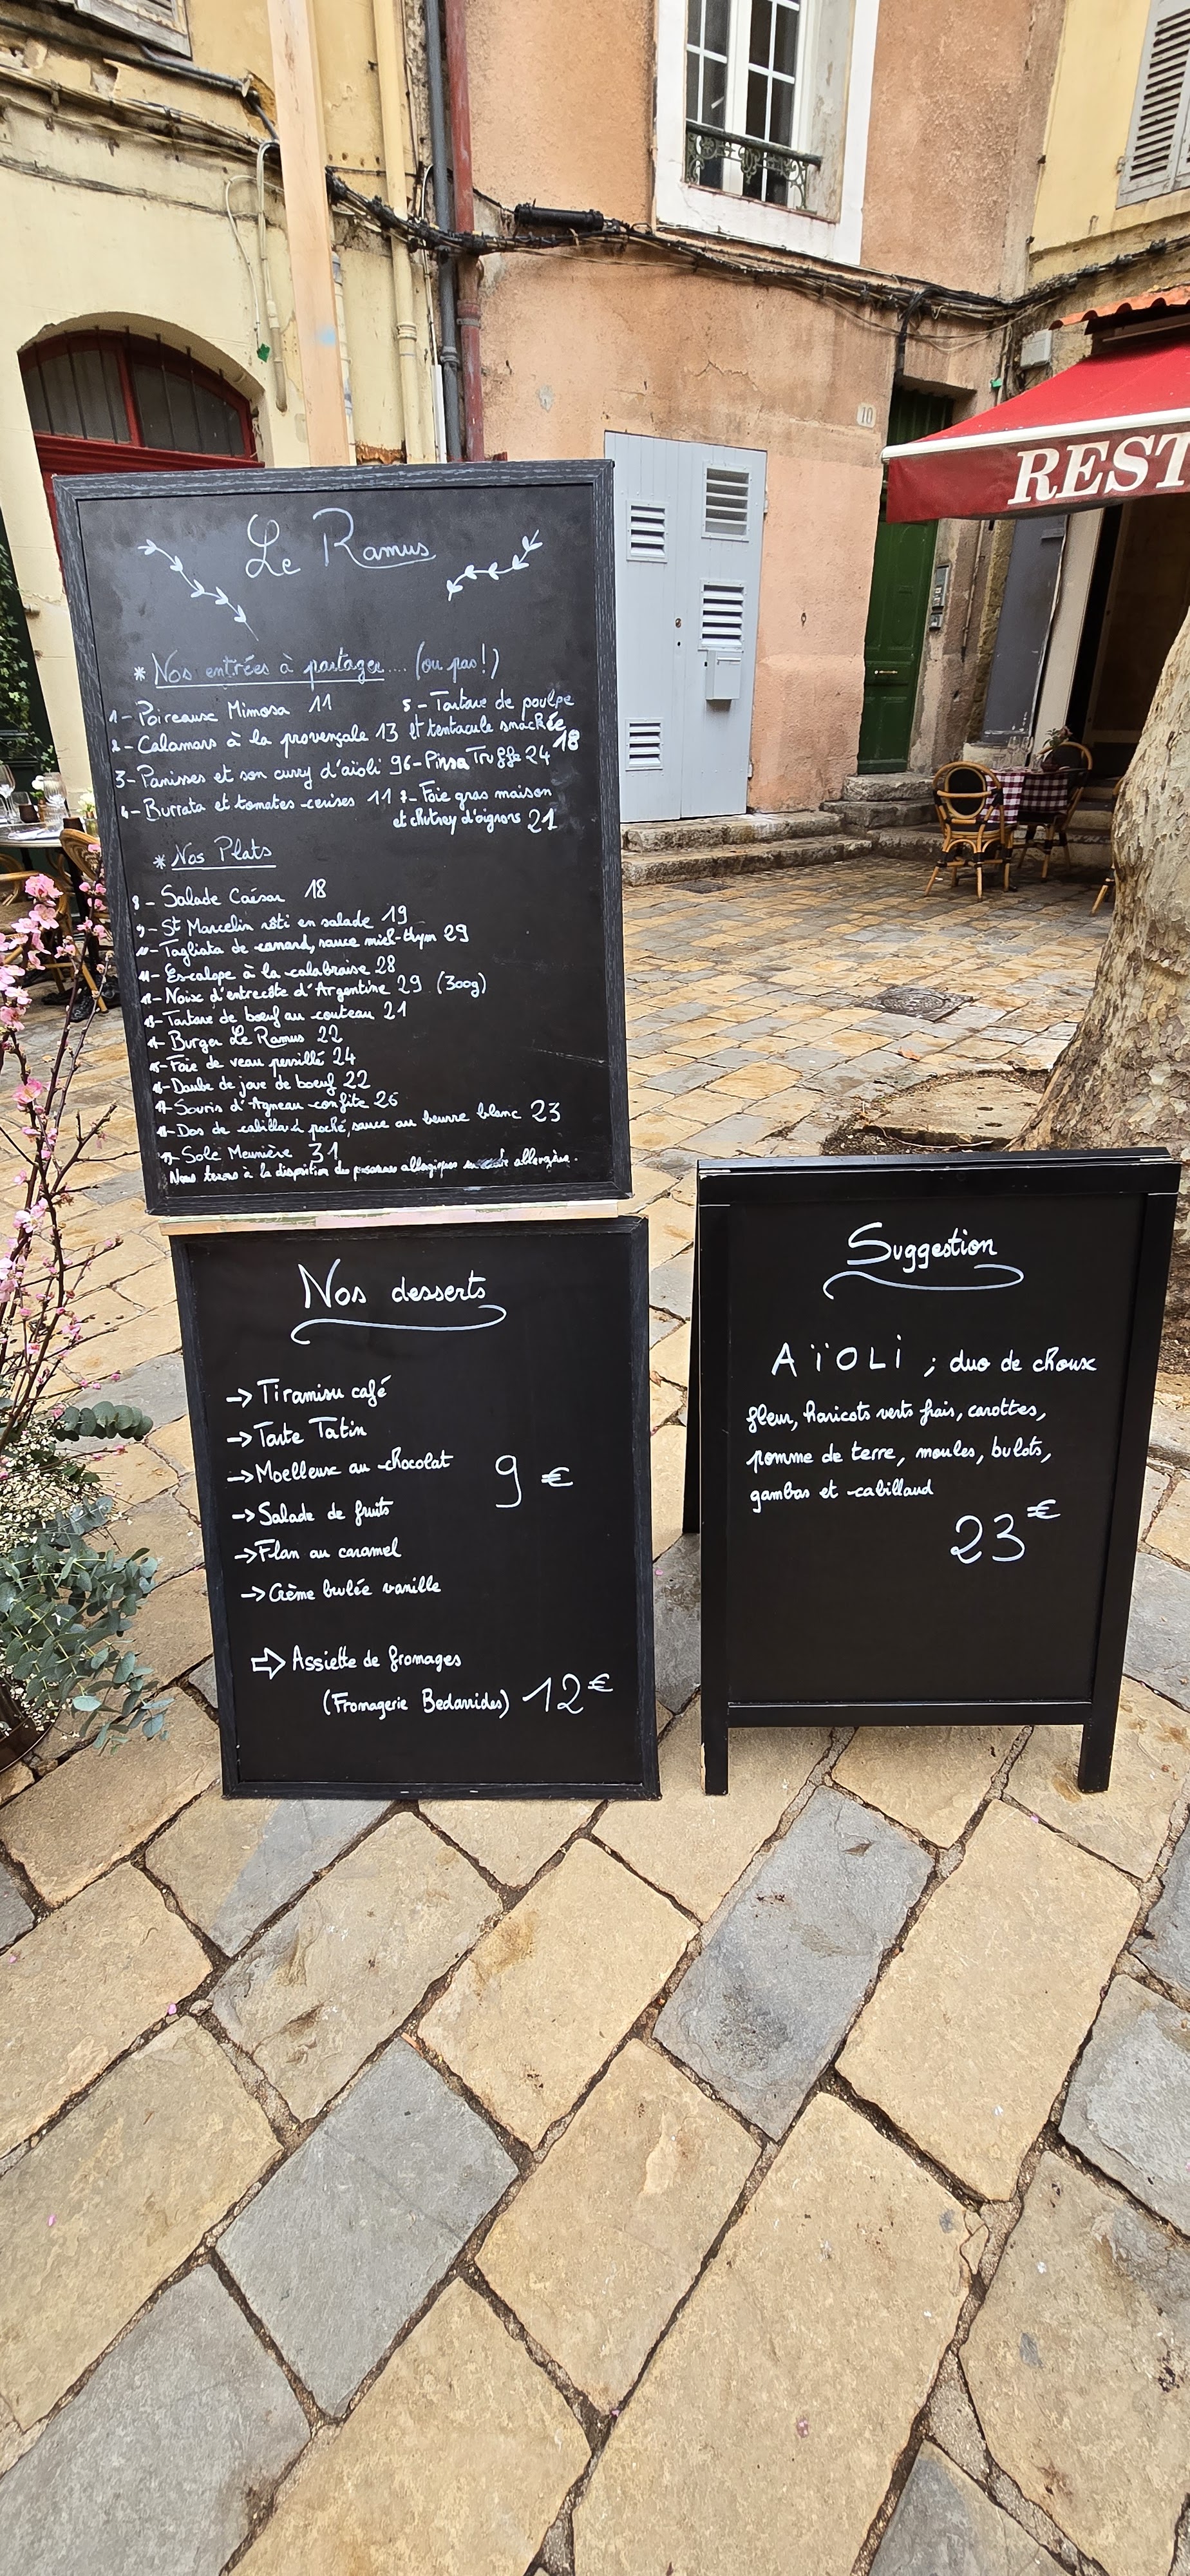 10
REST
Le Ramus
* Nos entrées à partager.... (ou pas!)
1- Poireaux Mimosa 11
2- Calamars à la provençale 13
3- Panisses et son curry d'aïoli 9
4- Burrata et tomates cerises 11
5- Tartare de poulpe
et tentacule snackée
18
6- Pinsa Truffe 24
7- Foie gras maison
et chutney d'oignons 21
* Nos Plats
8- Salade Caésar 18
9- St Marcelin rôti en salade 19
10- Tagliata de canard, sauce miel-thym 29
11- Escalope à la calabraise 28
12- Noix d'entrecôte d'Argentine 29 (300g)
13- Tartare de boeuf au couteau 21
14- Burger Le Ramus 22
15- Foie de veau persillé 24
16- Daube de joue de boeuf 22
17- Souris d'Agneau confite 26
18- Dos de cabillaud poché, sauce au beurre blanc 23
19- Sole Meunière 31
Nous tenons à la disposition des personnes allergiques allergène.
Nos desserts
→ Tiramisu café
→ Tarte Tatin
→ Moelleux au chocolat
9 €
→ Salade de fruits
→ Flan au caramel
→ Crème brulée vanille
⇨ Assiette de fromages
(Fromagerie Bedarrides) 12€
Suggestion
AÏOLI ; duo de choux
fleur, haricots verts frais, carottes,
pomme de terre, moules, bulots,
gambas et cabillaud
23€